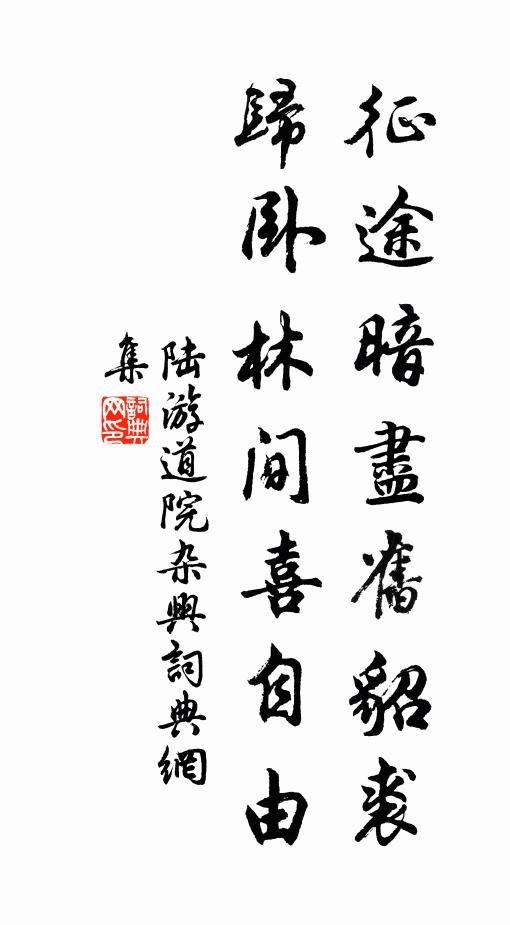 征途暗盡舊貂裘
歸卧林间喜自由
陆游道院杂興詞典網
集
詞典
网印